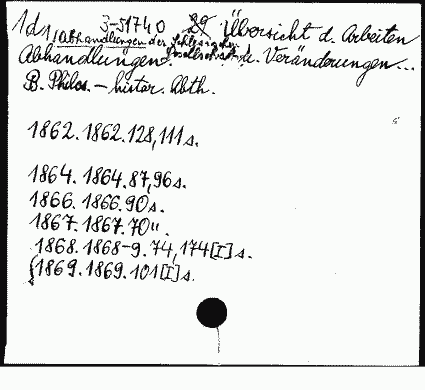 1d1 3-51740 29 Übersicht d. Arbeiten
/Abhandlungen der Schlesischen
Abhandlungen Gesellschaft u. Veränderungen...
B. Philos. - histor. Abth.
1862. 1862. 128, 111 s.
1864. 1864. 87, 96 s.
1866. 1866. 90 s.
1867. 1867. 70 "
1868. 1868-9. 74, 174 [I] s.
(1869. 1869. 101 [I] s.